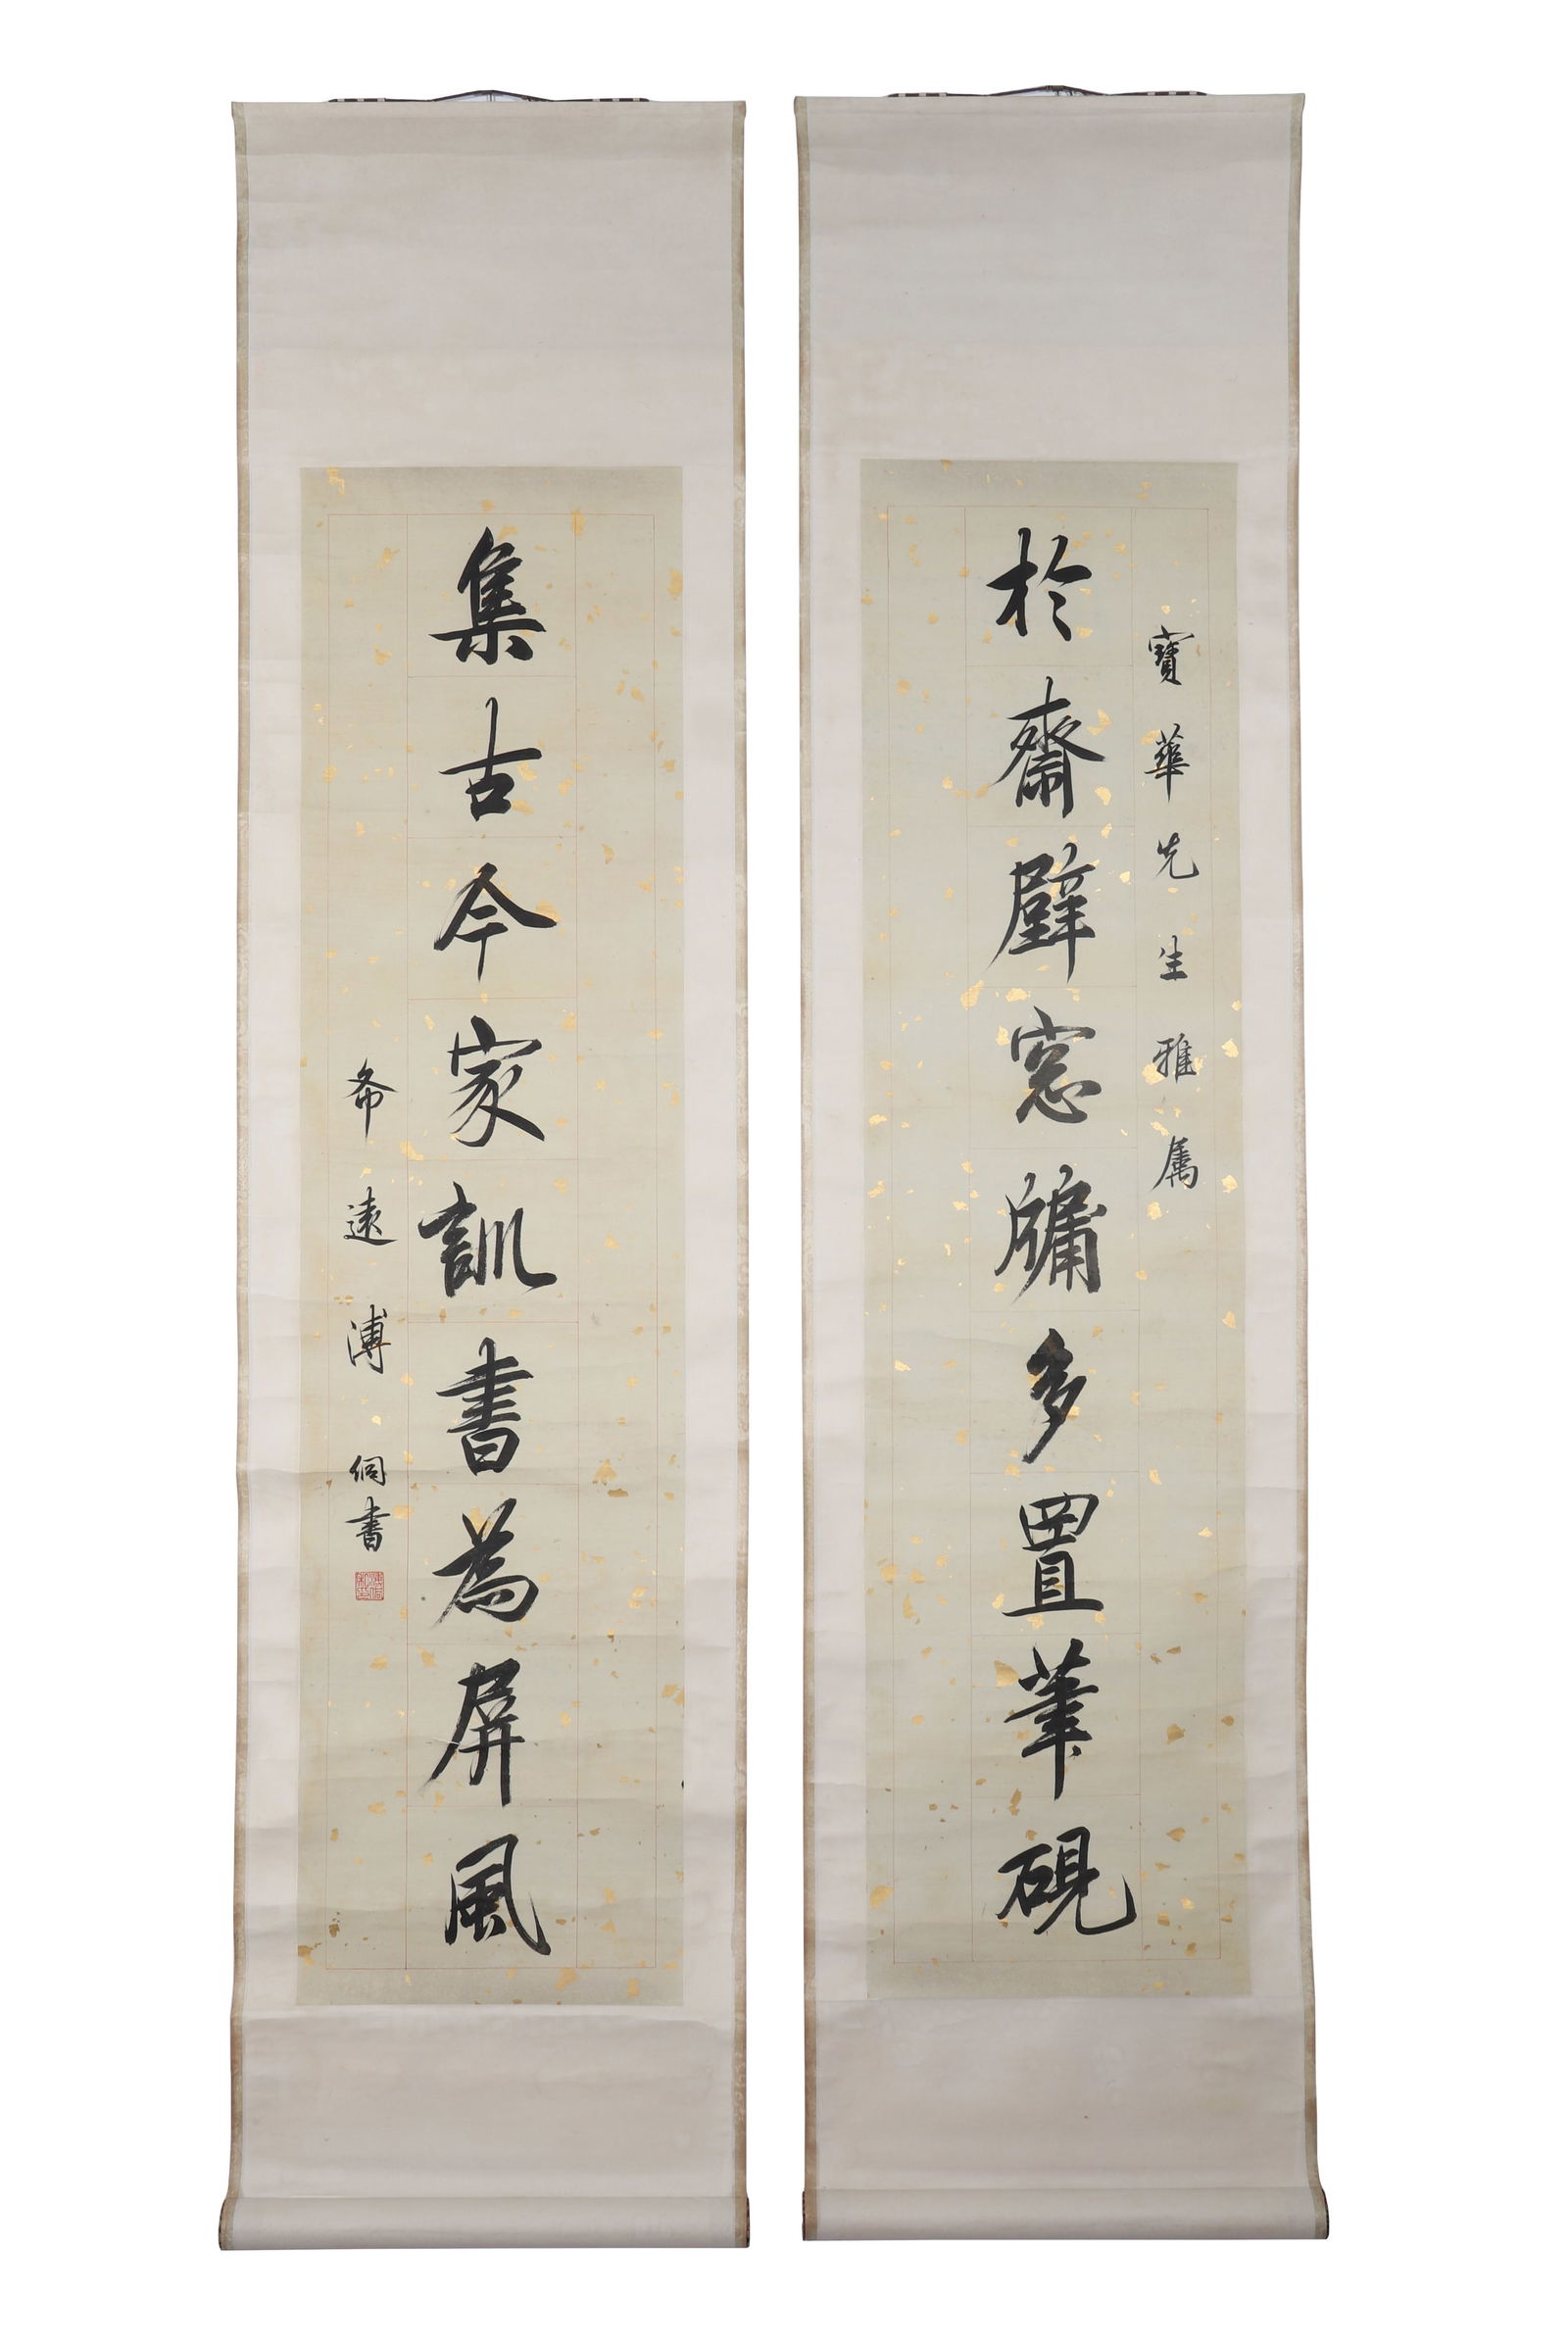 寶華先生雅属
於齋壁窓牖多置筆硯
集古今家訓書為屏風
希遠溥侗書